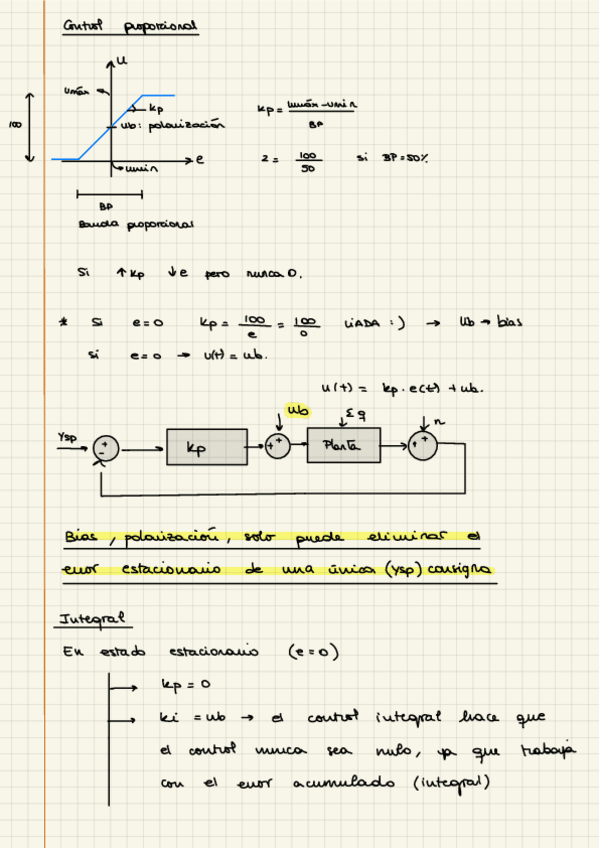 Control proporcional
u
umáx
kp
100
ub: polarización
e
umin
BP
Banda proporcional
kp = umáx-umin / BP
2 = 100 / 50 si BP=50%
Si ↑kp ↓e pero nunca 0.
* Si e=0 kp = 100/e = 100/0 LIADA :) → ub → bias
si e=0 → u(t) = ub.
u(t) = kp·e(t) + ub.
ysp
+
-
kp
ub
+ +
Σq
Planta
n
+ +
Bias, polarización, solo puede eliminar el
error estacionario de una única (ysp) consigna
Integral
En estado estacionario (e=0)
→ kp = 0
→ ki = ub → el control integral hace que
el control nunca sea nulo, ya que trabaja
con el error acumulado (integral)